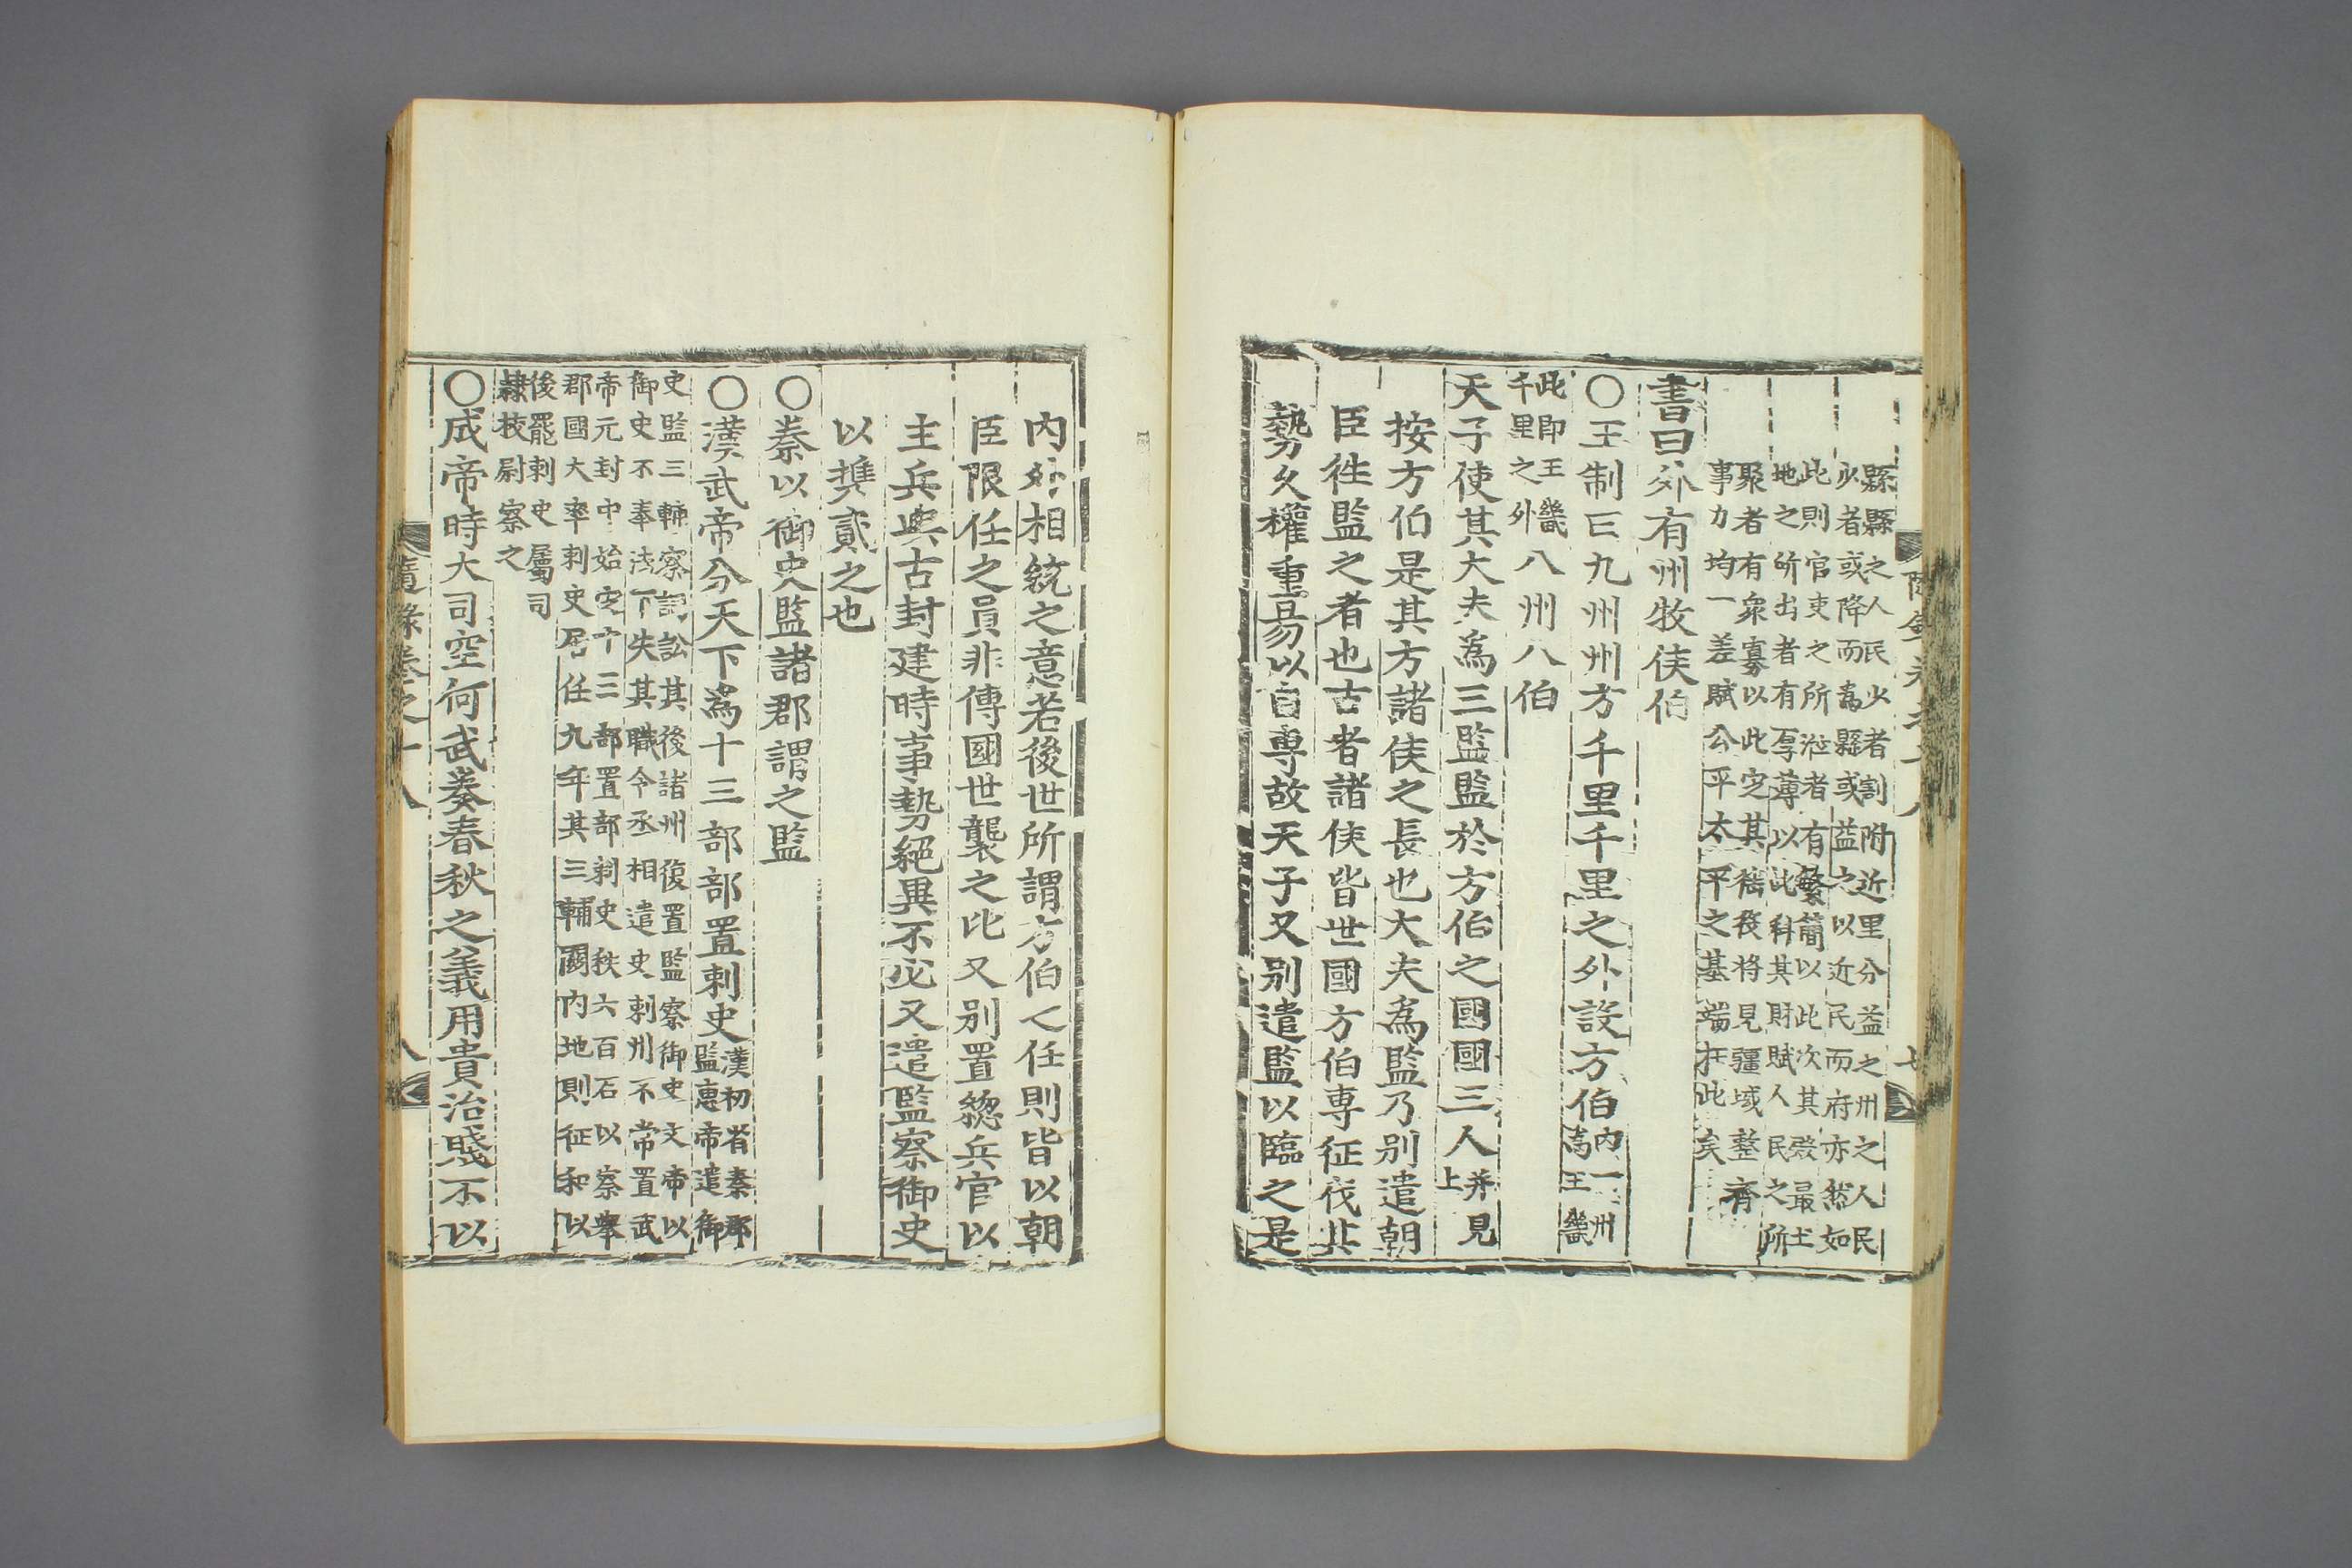 縣縣之人民少者割附近里分益之州之人民
少者或降而爲縣或益之以近民而府亦然如
此則官吏之所涖者有繁簡以此次其殿最土
地之所出者有厚薄以此科其財賦人民之所
聚者有衆寡以此定其徭役將見疆域整齊
事力均一差賦公平太平之基端在此矣
書曰外有州牧侯伯
○王制曰九州州方千里千里之外設方伯內一州
爲王畿
此卽王畿
千里之外八州八伯
天子使其大夫爲三監監於方伯之國國三人并見
上
按方伯是其方諸侯之長也大夫爲監乃別遣朝
臣徃監之者也古者諸侯皆世國方伯專征伐其
勢久權重易以自專故天子又別遣監以臨之是
內外相統之意若後世所謂方伯之任則皆以朝
臣限任之員非傳國世襲之比又別置緫兵官以
主兵與古封建時事勢絕異不必又遣監察御史
以携貳之也
○秦以御史監諸郡謂之監
○漢武帝分天下爲十三部部置刺史漢初省秦郡
監惠帝遣御
史監三輔察詞訟其後諸州復置監察御史文帝以
御史不奉法下失其職令丞相遣史刺州不常置武
帝元封中始定十三部置部刺史秩六百石以察舉
郡國大率刺史居任九年其三輔關內地則征和以
後罷刺史屬司
隷校尉察之
○成帝時大司空何武奏春秋之義用貴治賤不以
隨錄卷之十八
八